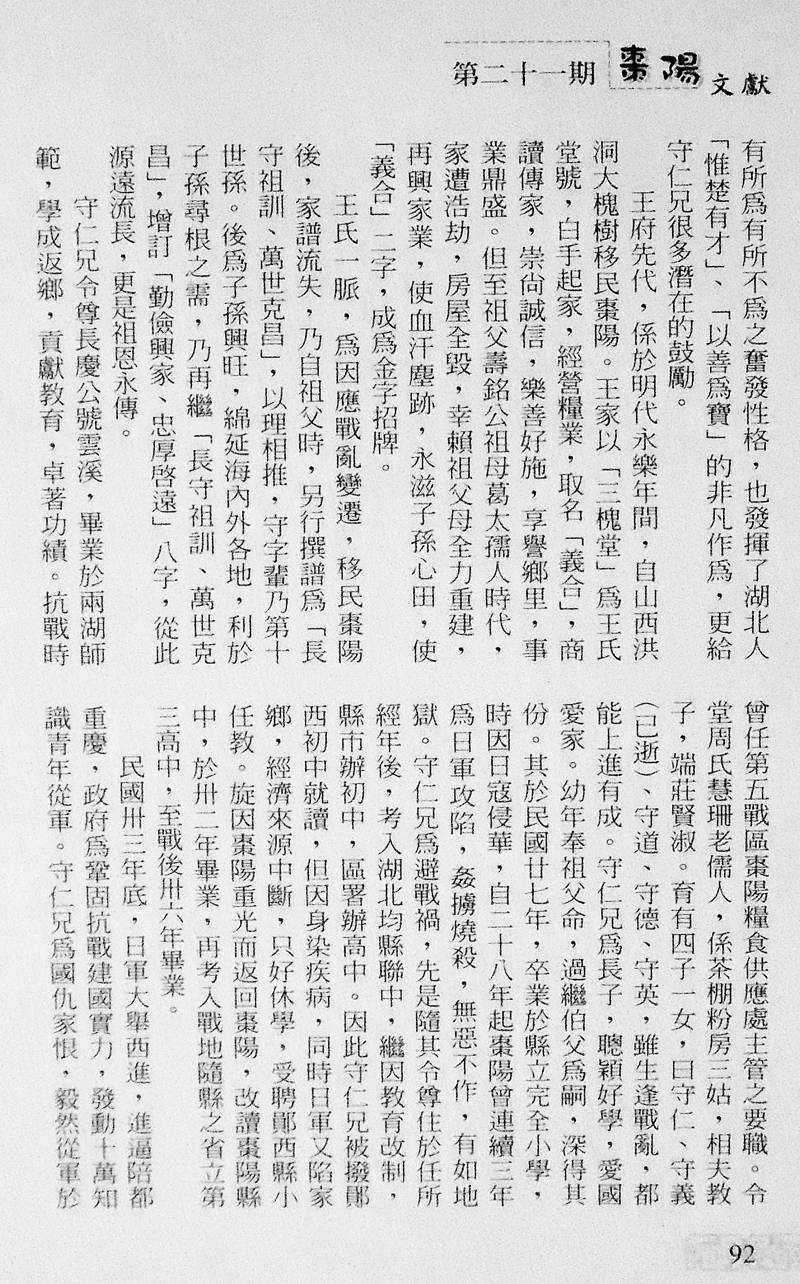 第二十一期 棗陽文獻
有所為有所不為之奮發性格，也發揮了湖北人
「惟楚有才」、「以善為寶」的非凡作為，更給
守仁兄很多潛在的鼓勵。
王府先代，係於明代永樂年間，自山西洪
洞大槐樹移民棗陽。王家以「三槐堂」為王氏
堂號，白手起家，經營糧業，取名「義合」，商
讀傳家，崇尚誠信，樂善好施，享譽鄉里，事
業鼎盛。但至祖父壽銘公祖母葛太孺人時代，
家遭浩劫，房屋全毀，幸賴祖父母全力重建，
再興家業，使血汗塵跡，永滋子孫心田，使
「義合」二字，成為金字招牌。
王氏一脈，為因應戰亂變遷，移民棗陽
後，家譜流失，乃自祖父時，另行撰譜為「長
守祖訓、萬世克昌」，以理相推，守字輩乃第十
世孫。後為子孫興旺，綿延海內外各地，利於
子孫尋根之需，乃再繼「長守祖訓、萬世克
昌」，增訂「勤儉興家、忠厚啓遠」八字，從此
源遠流長，更是祖恩永傳。
守仁兄令尊長慶公號雲溪，畢業於兩湖師
範，學成返鄉，貢獻教育，卓著功績。抗戰時
曾任第五戰區棗陽糧食供應處主管之要職。令
堂周氏慧珊老儒人，係茶棚粉房三姑，相夫教
子，端莊賢淑。育有四子一女，曰守仁、守義
（已逝）、守道、守德、守英，雖生逢戰亂，都
能上進有成。守仁兄為長子，聰穎好學，愛國
愛家。幼年奉祖父命，過繼伯父為嗣，深得其
份。其於民國廿七年，卒業於縣立完全小學，
時因日寇侵華，自二十八年起棗陽曾連續三年
為日軍攻陷，姦擄燒殺，無惡不作，有如地
獄。守仁兄為避戰禍，先是隨其令尊住於任所
經年後，考入湖北均縣聯中，繼因教育改制，
縣市辦初中，區署辦高中。因此守仁兄被撥鄖
西初中就讀，但因身染疾病，同時日軍又陷家
鄉，經濟來源中斷，只好休學，受聘鄖西縣小
任教。旋因棗陽重光而返回棗陽，改讀棗陽縣
中，於卅二年畢業，再考入戰地隨縣之省立第
三高中，至戰後卅六年畢業。
民國卅三年底，日軍大舉西進，進逼陪都
重慶，政府為鞏固抗戰建國實力，發動十萬知
識青年從軍。守仁兄為國仇家恨，毅然從軍於
92